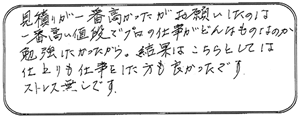 見積りが一番高かったがお願いしたのは
一番高い値段でプロの仕事がどんなものなのか
勉強したかったから。結果はこちらとしては
仕上りも仕事をした方も良かったです
ストレス無しです.